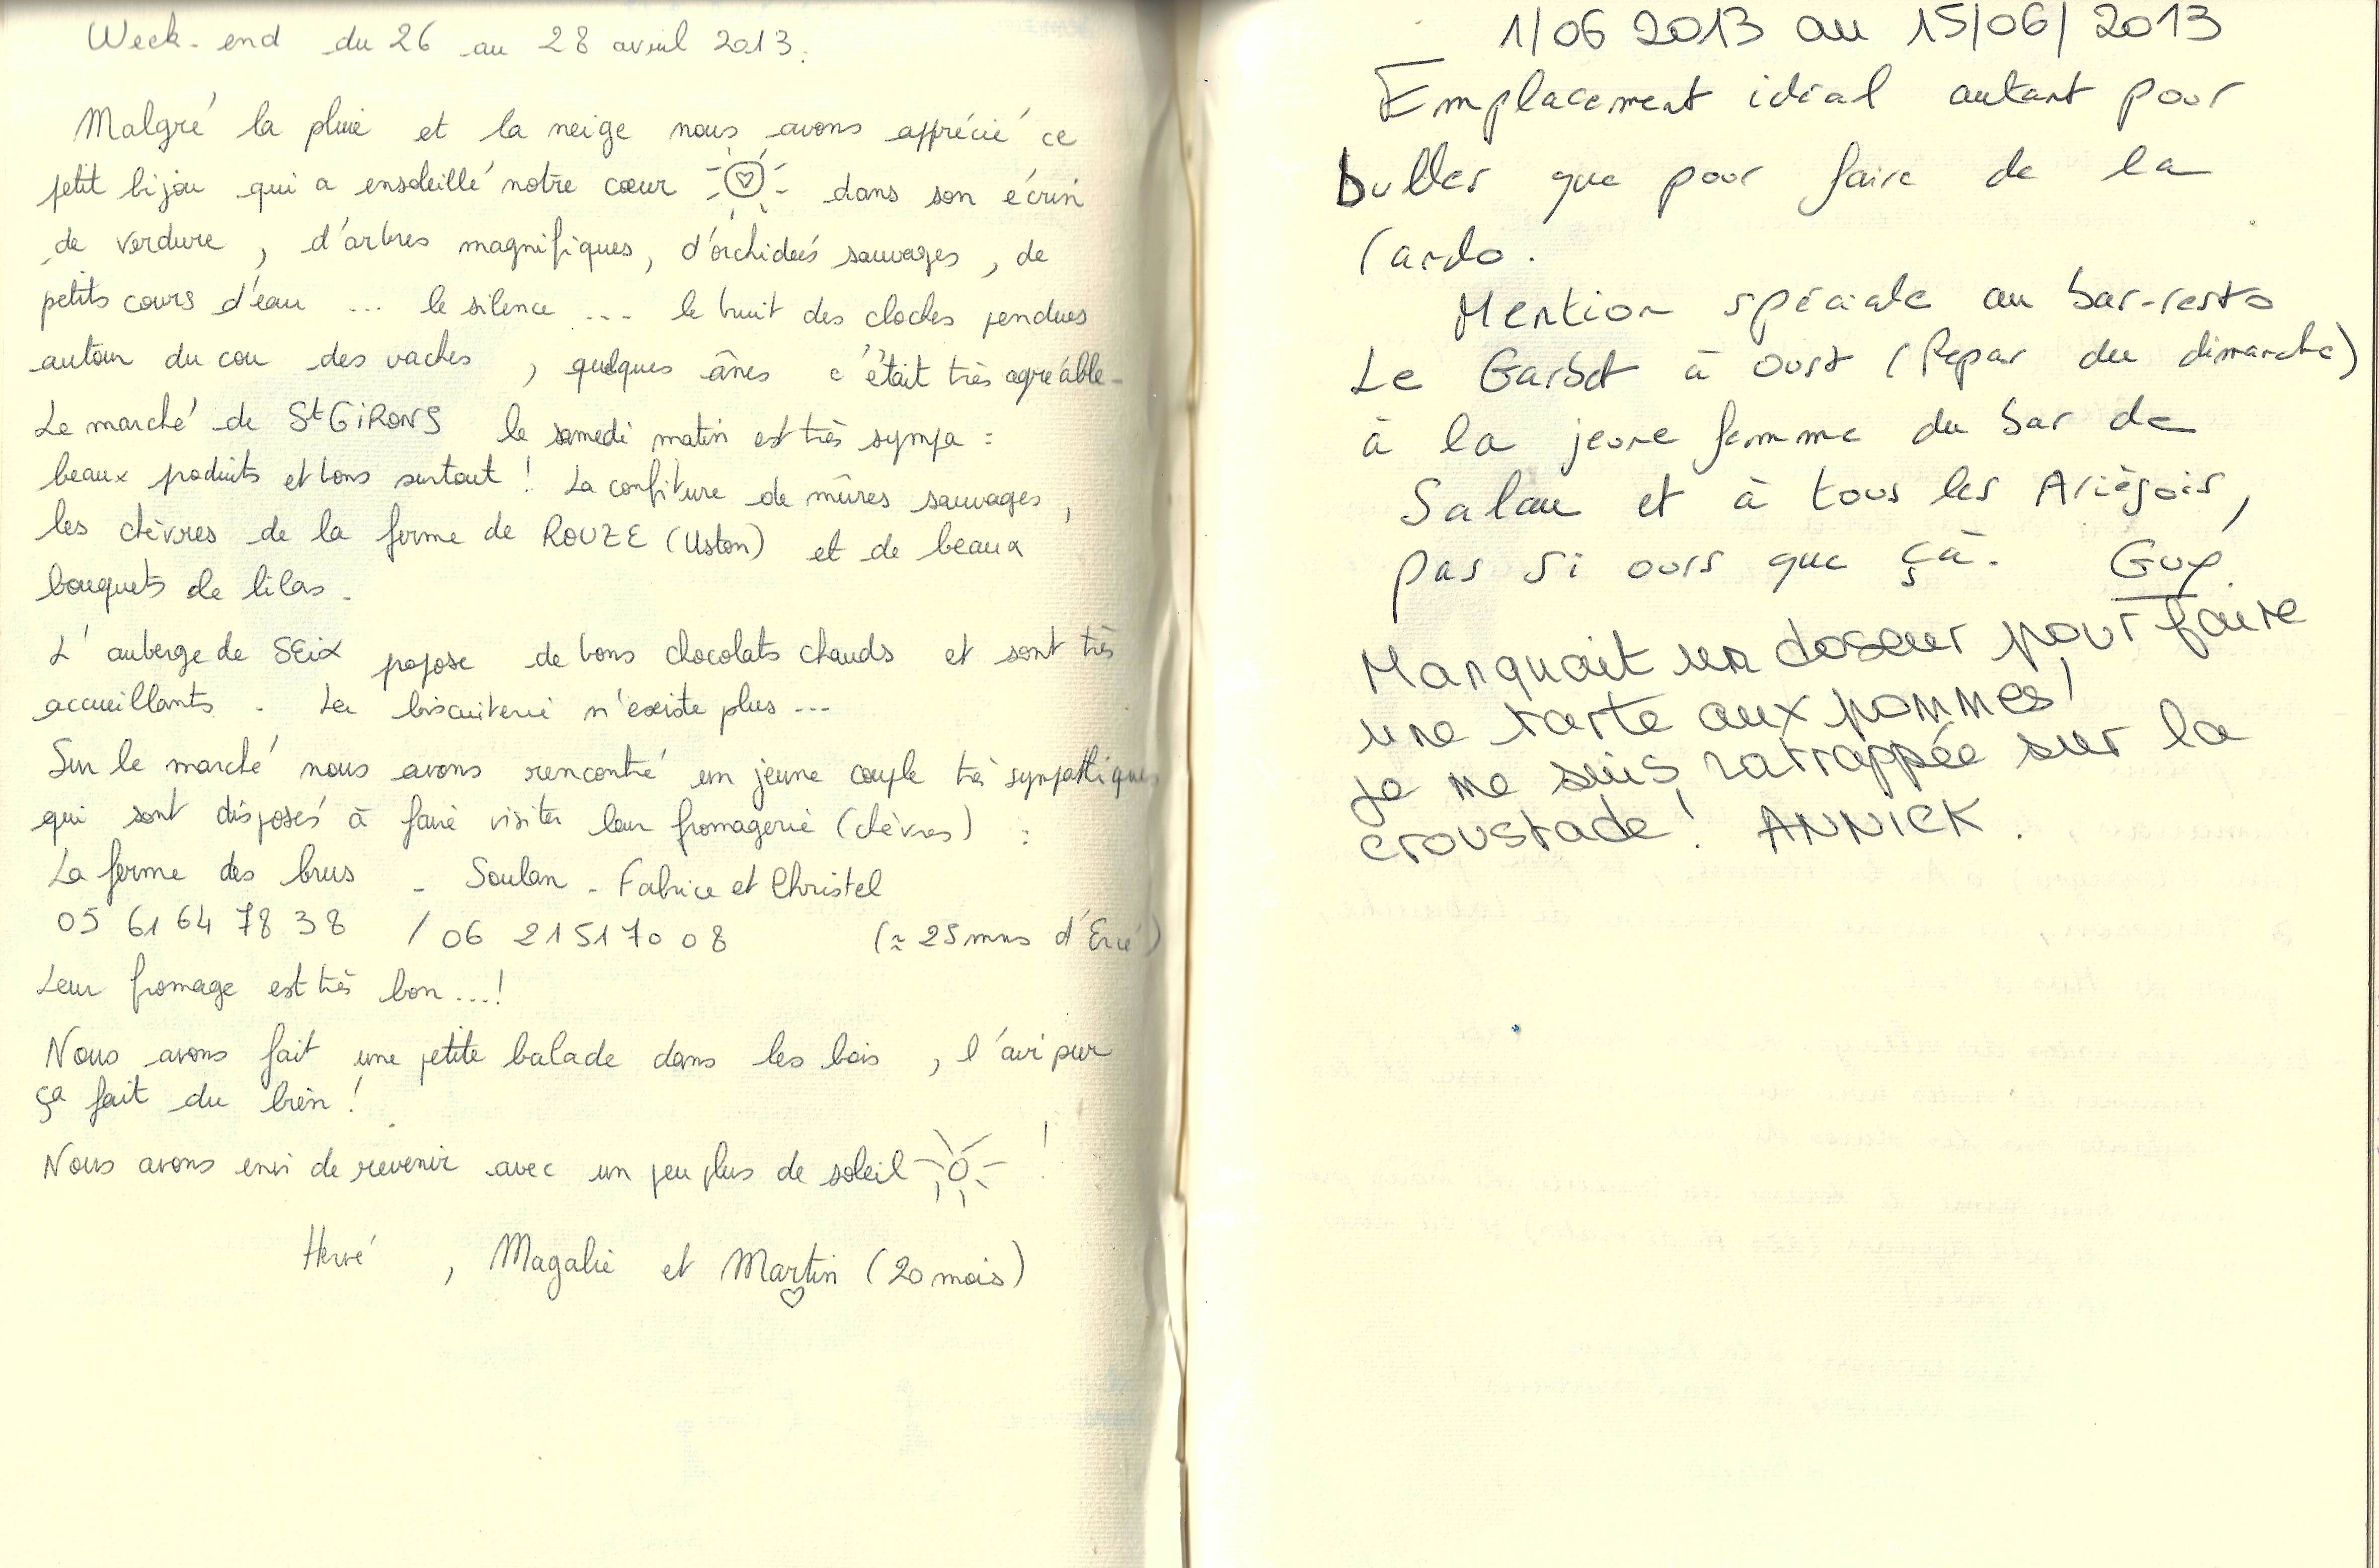 Week-end du 26 au 28 avril 2013.
Malgré la pluie et la neige nous avons apprécié ce
petit bijou qui a ensoleillé notre cœur dans son écrin
de verdure, d'arbres magnifiques, d'orchidées sauvages, de
petits cours d'eau ... le silence ... le bruit des cloches pendues
autour du cou des vaches, quelques ânes c'était très agréable.
Le marché de St GiRONS le samedi matin est très sympa :
beaux produits et bons surtout ! La confiture de mûres sauvages,
les chèvres de la ferme de ROUZE (Uston) et de beaux
bouquets de lilas.
L'auberge de SEiX propose de bons chocolats chauds et sont très
accueillants. La biscuiterie n'existe plus ...
Sur le marché nous avons rencontré un jeune couple très sympathiques
qui sont disposés à faire visiter leur fromagerie (chèvres) :
La ferme des brus - Soulan - Fabrice et Christel
05 61 64 78 38 / 06 21 51 70 08 (≈ 25 mns d'Ercé)
Leur fromage est très bon ...!
Nous avons fait une petite balade dans les bois, l'air pur
ça fait du bien !
Nous avons envi de revenir avec un peu plus de soleil !
Hervé, Magalie et Martin (20 mois)
1/06 2013 au 15/06/2013
Emplacement idéal autant pour
buller que pour faire de la
rando.
Mention spéciale au bar-resto
Le Garbet à Oust (Repas du dimanche)
à la jeune femme du bar de
Salau et à tous les Ariègois,
pas si ours que çà. Guy.
Manquait un doseur pour faire
une tarte aux pommes!
je me suis ratrappée sur la
croustade! ANNICK.